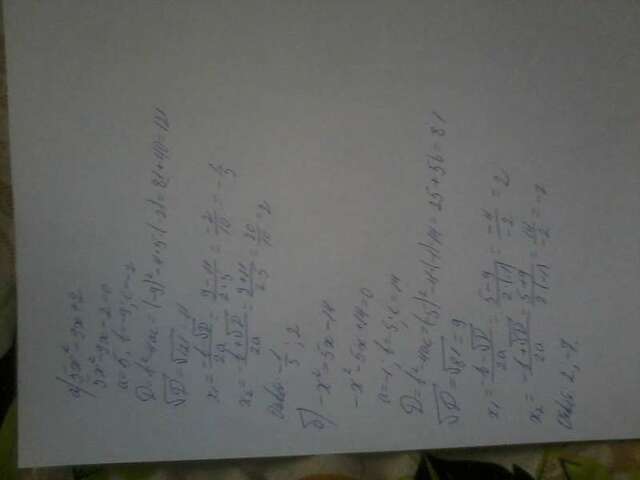 а) 5x² = 9x + 2
5x² - 9x - 2 = 0
a = 5, b = -9, c = -2
D = b² - 4ac = (-9)² - 4·5·(-2) = 81 + 40 = 121
√D = √121 = 11
x₁ = (-b - √D)/2a = (9 - 11)/(2·5) = -2/10 = -1/5
x₂ = (-b + √D)/2a = (9 + 11)/(2·5) = 20/10 = 2
Ответ: -1/5; 2
б) -x² = 5x - 14
-x² - 5x + 14 = 0
a = -1, b = -5, c = 14
D = b² - 4ac = (-5)² - 4·(-1)·14 = 25 + 56 = 81
√D = √81 = 9
x₁ = (-b - √D)/2a = (5 - 9)/(2·(-1)) = -4/-2 = 2
x₂ = (-b + √D)/2a = (5 + 9)/(2·(-1)) = 14/-2 = -7
Ответ: 2, -7.